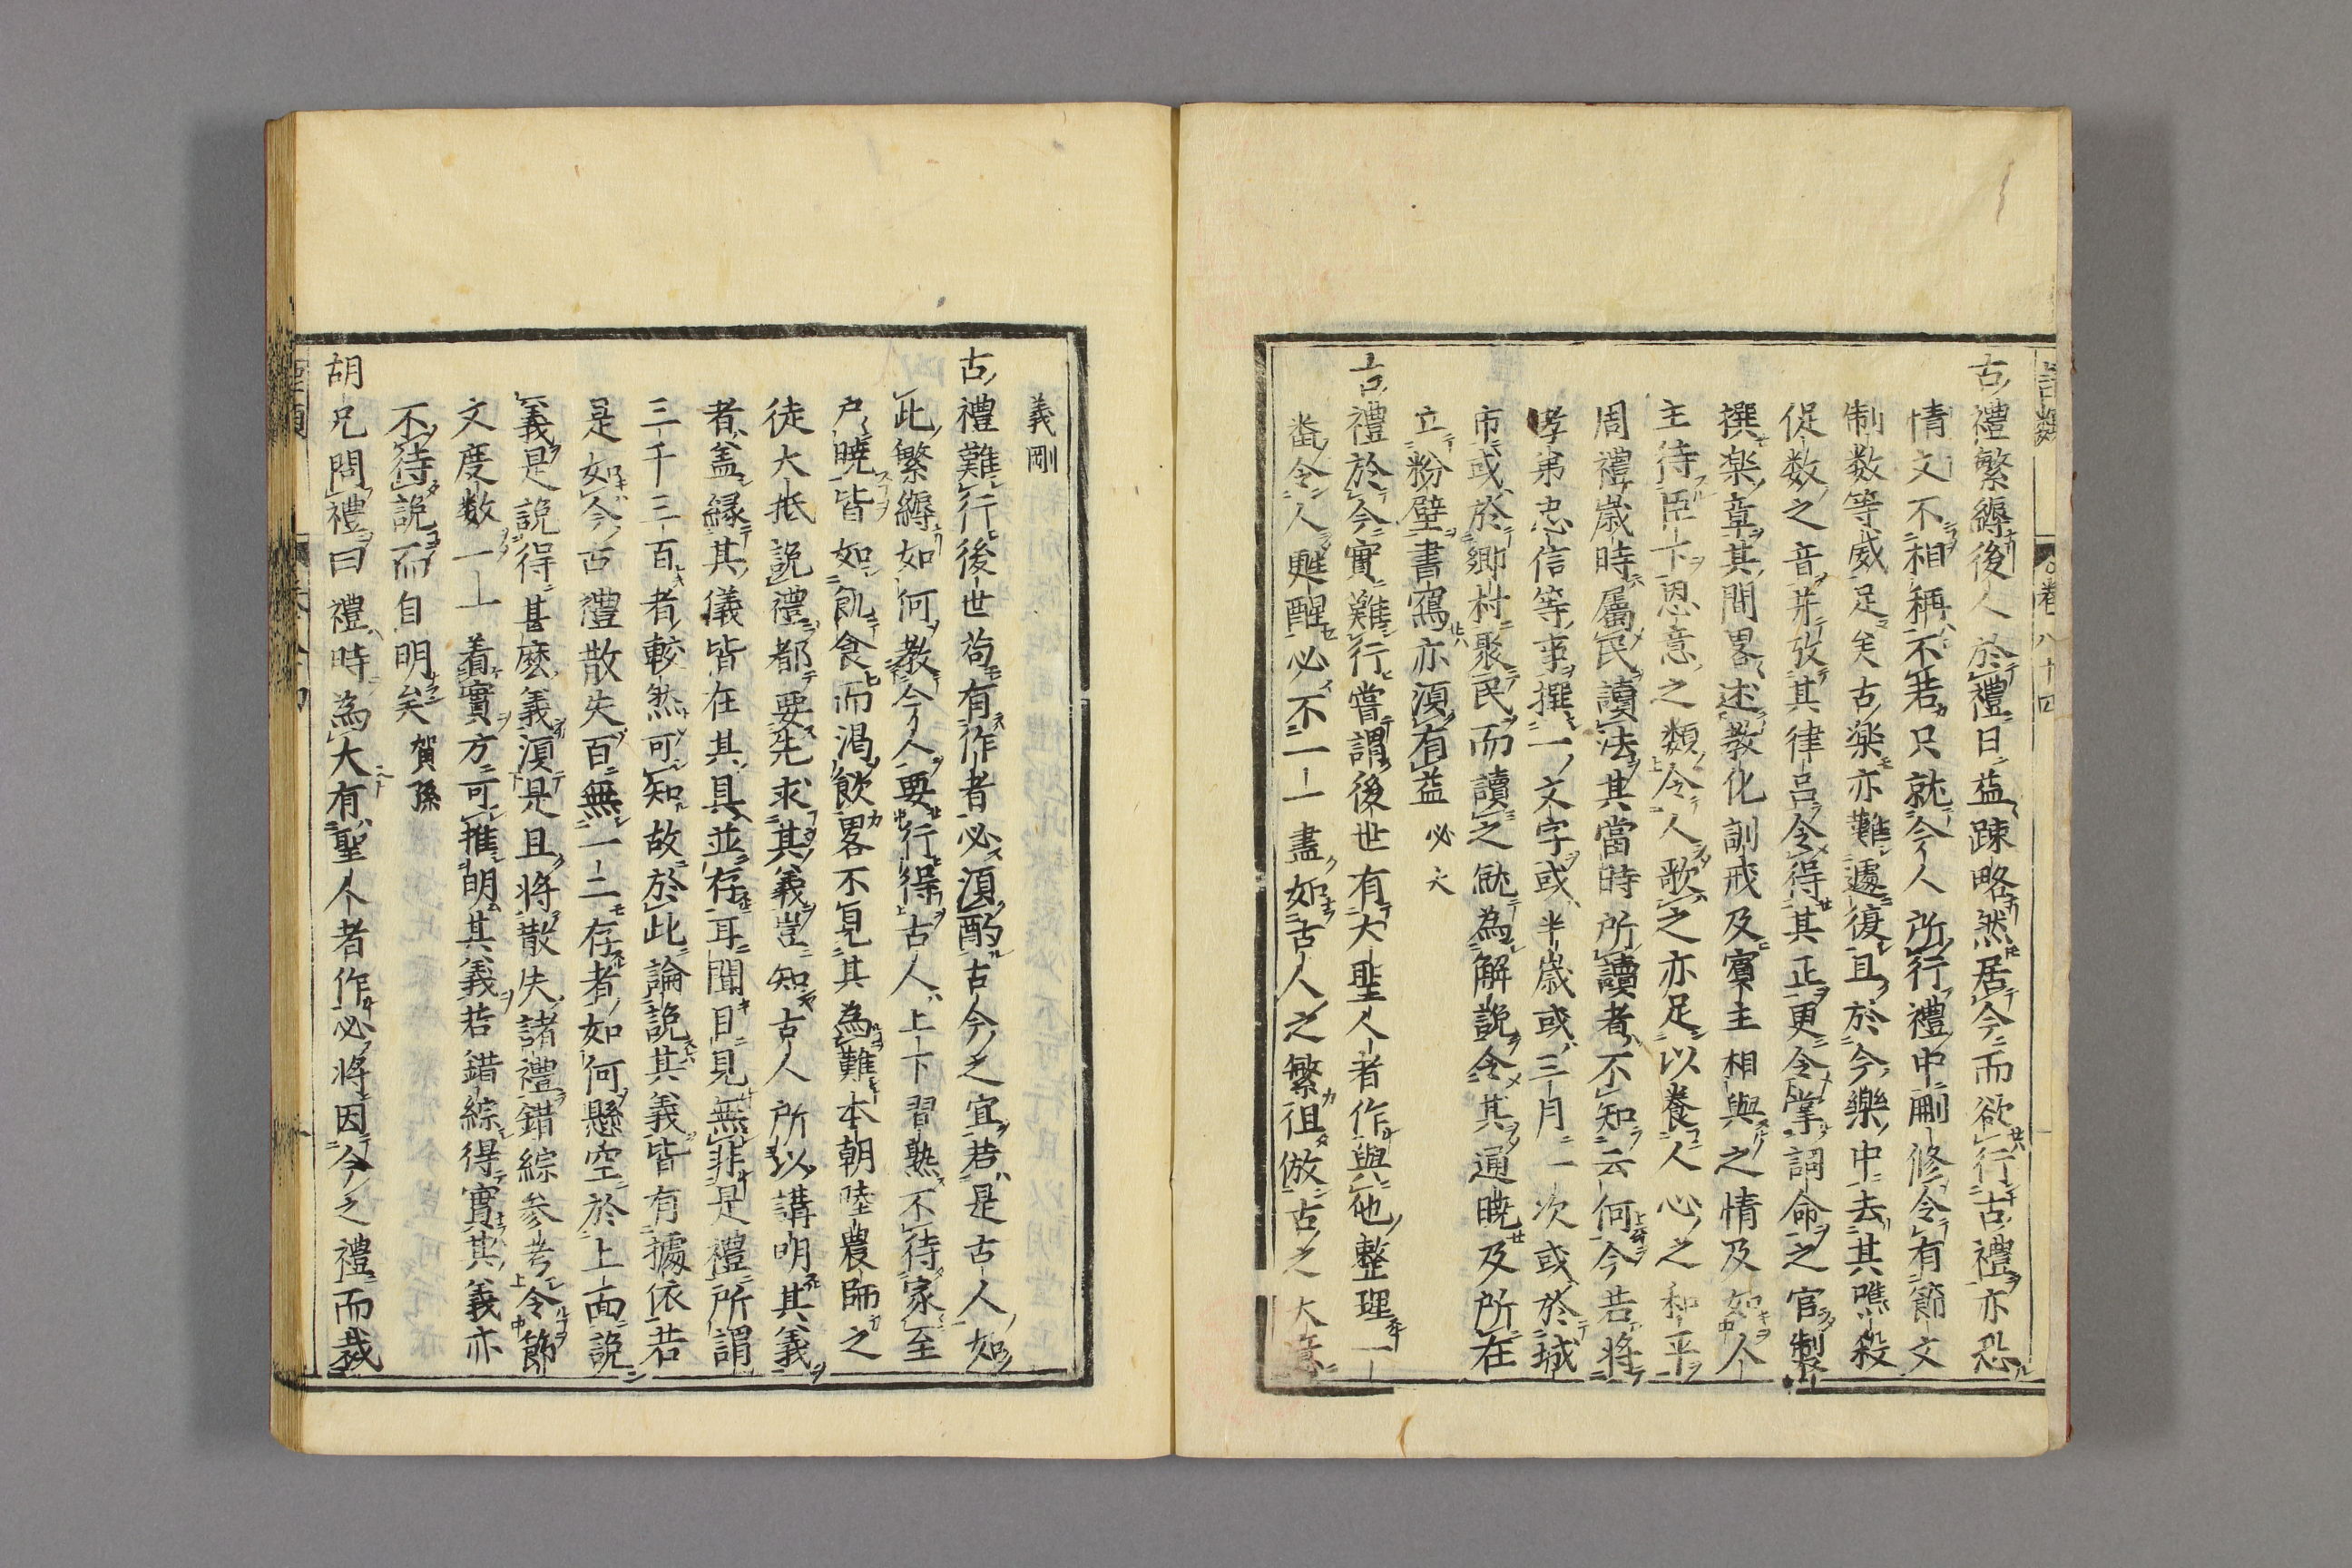 語類 卷八十四
古禮繁縟後人於禮日益踈略然居今而欲行古禮亦恐
情文不相稱不若只就今人所行禮中刪修令有節文
制数等威足矣古楽亦難遽復且於今樂中去其噍殺
促数之音并攷其律呂令得其正更令掌詞命之官製
撰楽章其間畧述教化訓戒及賓主相與之情及如人
主待臣下恩意之類令人歌之亦足以養人心之和平
周禮歲時屬民讀法其當時所讀者不知云何今若将
孝弟忠信等事撰一文字或半歲或三月一次或於城
市或於郷村聚民而讀之就為解說令其通曉及所在
立粉壁書寫亦湏有益 必大
古禮於今實難行嘗謂後世有大聖人者作與他整理一
畨令人甦醒必不一一盡如古人之繁但倣古之大意
義剛
古禮難行後世苟有作者必湏酌古今之宜若是古人如
此繁縟如何教今人要行得古人上下習熟不待家至
户曉皆如飢食而渴飲畧不見其為難本朝陸農師之
徒大抵說禮都要先求其義豈知古人所以講明其義
者盖縁其儀皆在其具並存耳聞目見無非是禮所謂
三千三百者較然可知故於此論說其義皆有據依若
是如今古禮散失百無一二存者如何懸空於上面說
義是說得甚麽義湏是且将散失諸禮錯綜参考令節
文度数一一着實方可推明其義若錯綜得實其義亦
不待說而自明矣 賀孫
胡兄問禮曰禮時為大有聖人者作必将因今之禮而裁